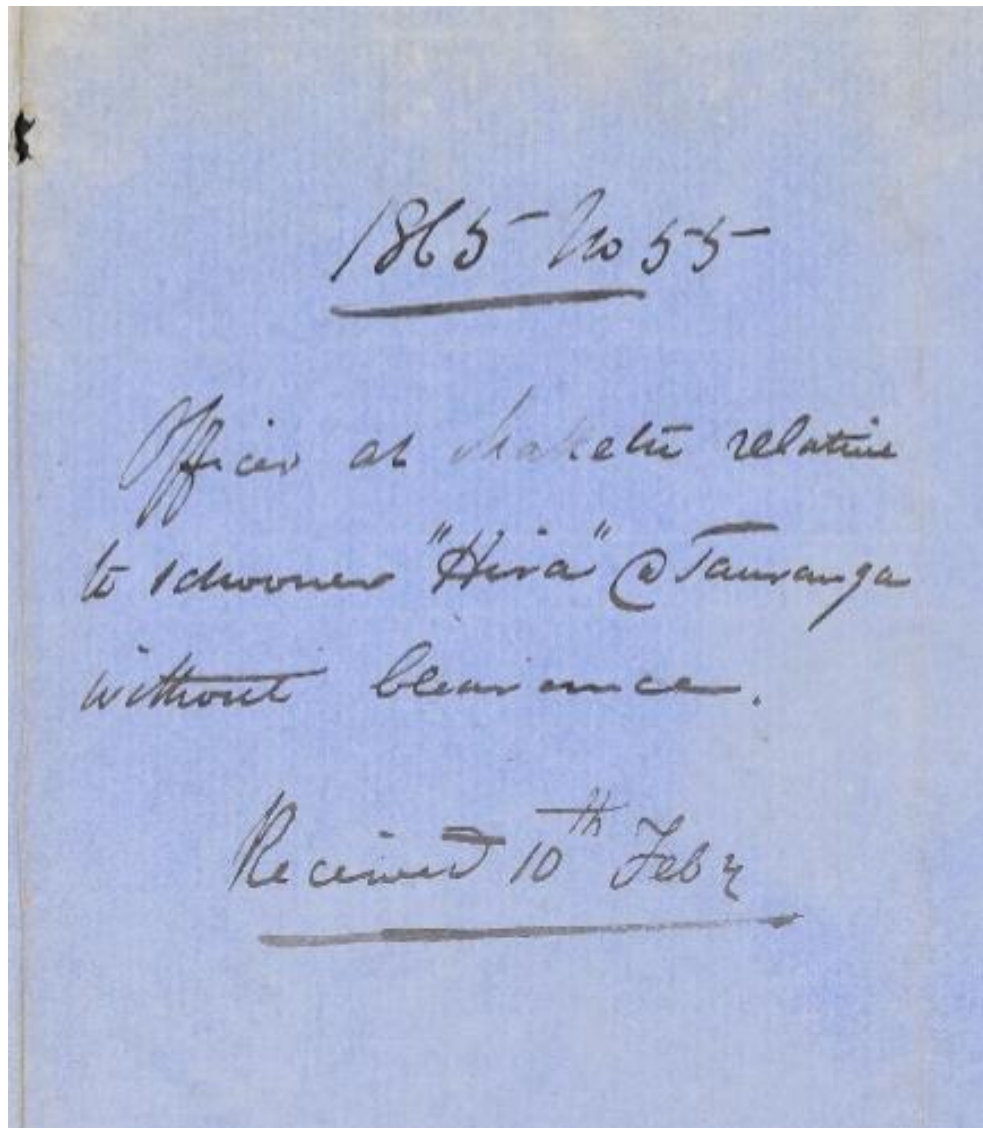 1865 No 55
Officer at Maketu relative
to schooner "Hira" @ Tauranga
without Clearance.
Received 10th Feby